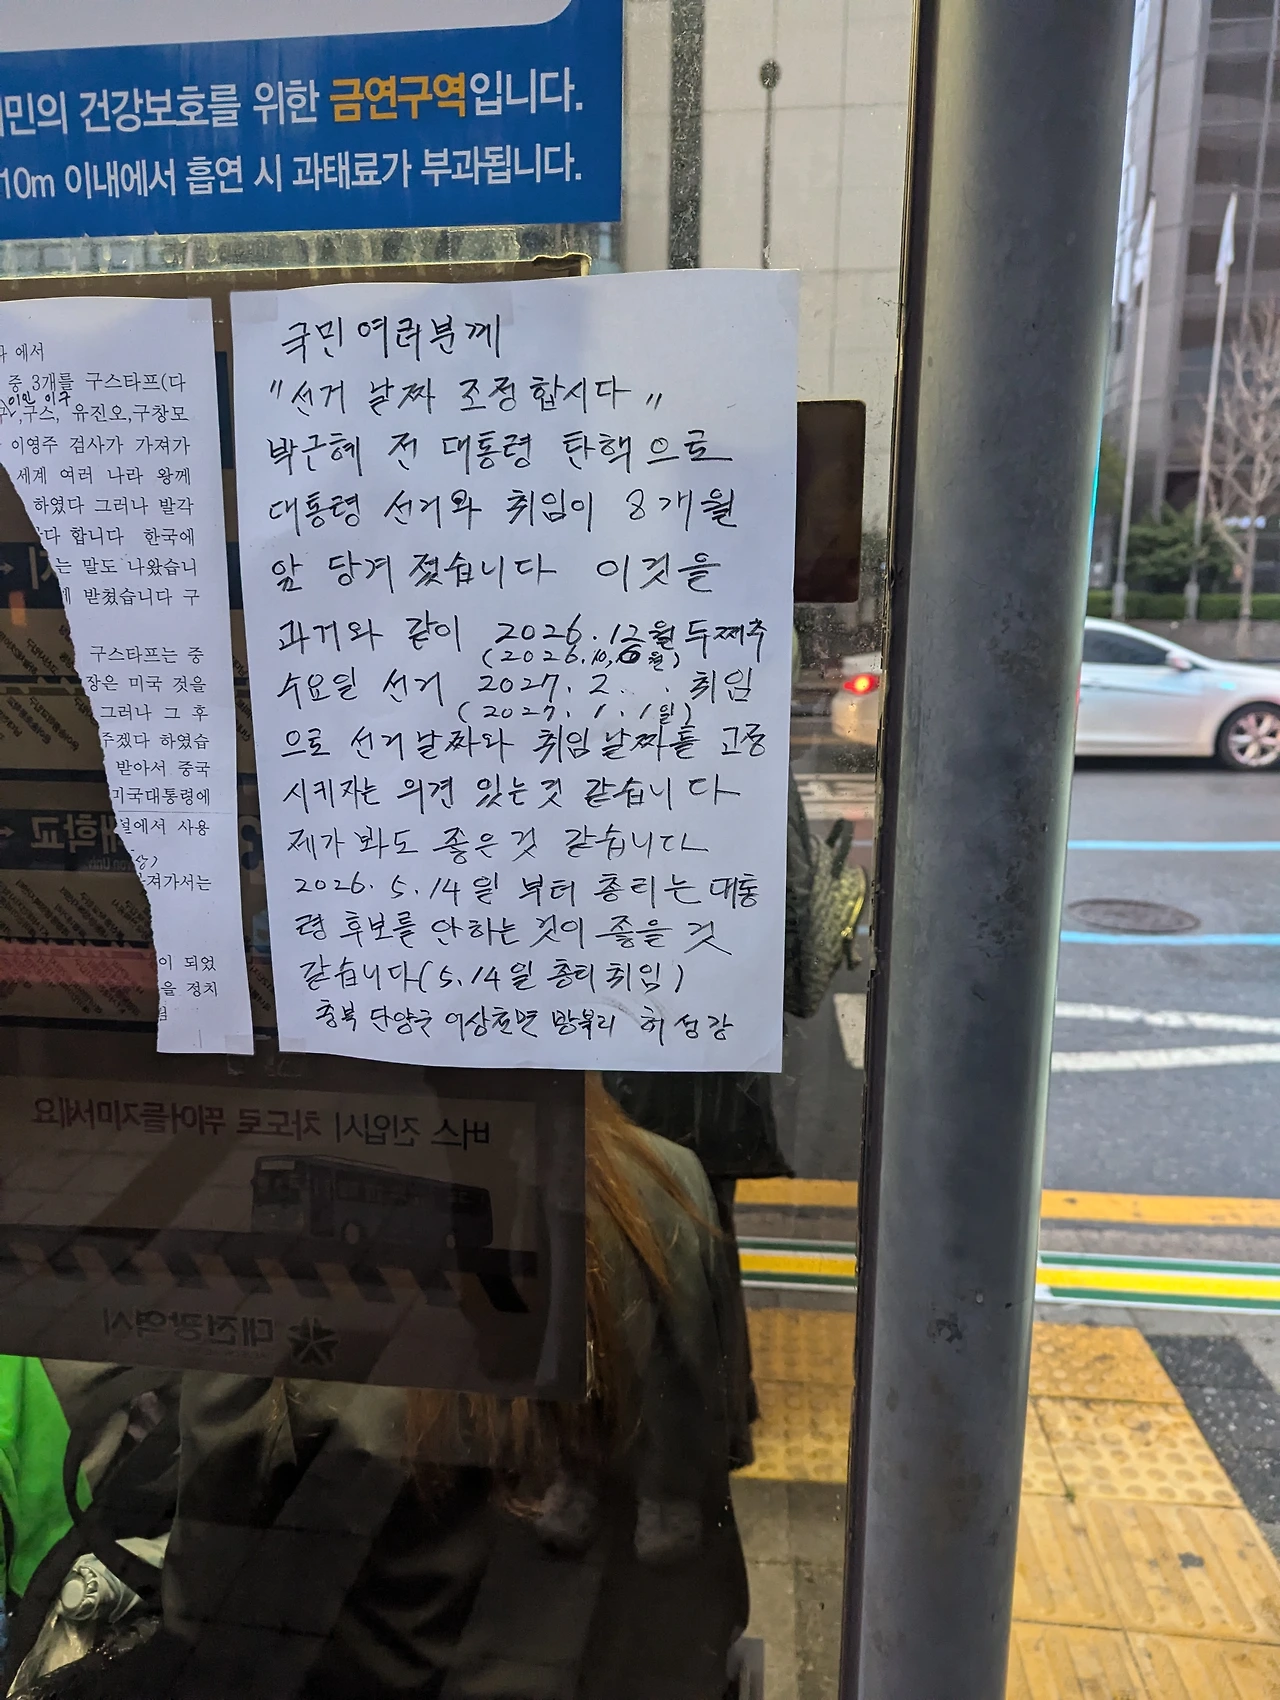 민의 건강보호를 위한 금연구역입니다.
10m 이내에서 흡연 시 과태료가 부과됩니다.
에서
중 3개를 구스타프(다
이인 이구
구스, 유진오,구창모
이영주 검사가 가져가
세계 여러 나라 왕께
하였다 그러나 발각
다 합니다 한국에
는 말도 나왔습니
받쳤습니다 구
구스타프는 중
장은 미국 것을
그러나 그 후
주겠다 하였습
받아서 중국
미국대통령에
에서 사용
상)
져가서는
이 되었
을 정치
국민 여러분께
"선거 날짜 조정 합시다"
박근혜 전 대통령 탄핵으로
대통령 선거와 취임이 8개월
앞 당겨 졌습니다 이것을
과거와 같이 2026.12월 두째주
(2026.10, 월)
수요일 선거 2027.2. . 취임
(2027.1.1일)
으로 선거날짜와 취임날짜를 고정
시키자는 의견 있는것 같습니다
제가 봐도 좋은 것 같습니다
2026.5.14일 부터 총리는 대통
령 후보를 안하는 것이 좋을 것
같습니다(5.14일 총리 취임)
충북 단양군 어상천면 방북리 허성강
버스 진입시 차도로 뛰어들지마세요
대전광역시